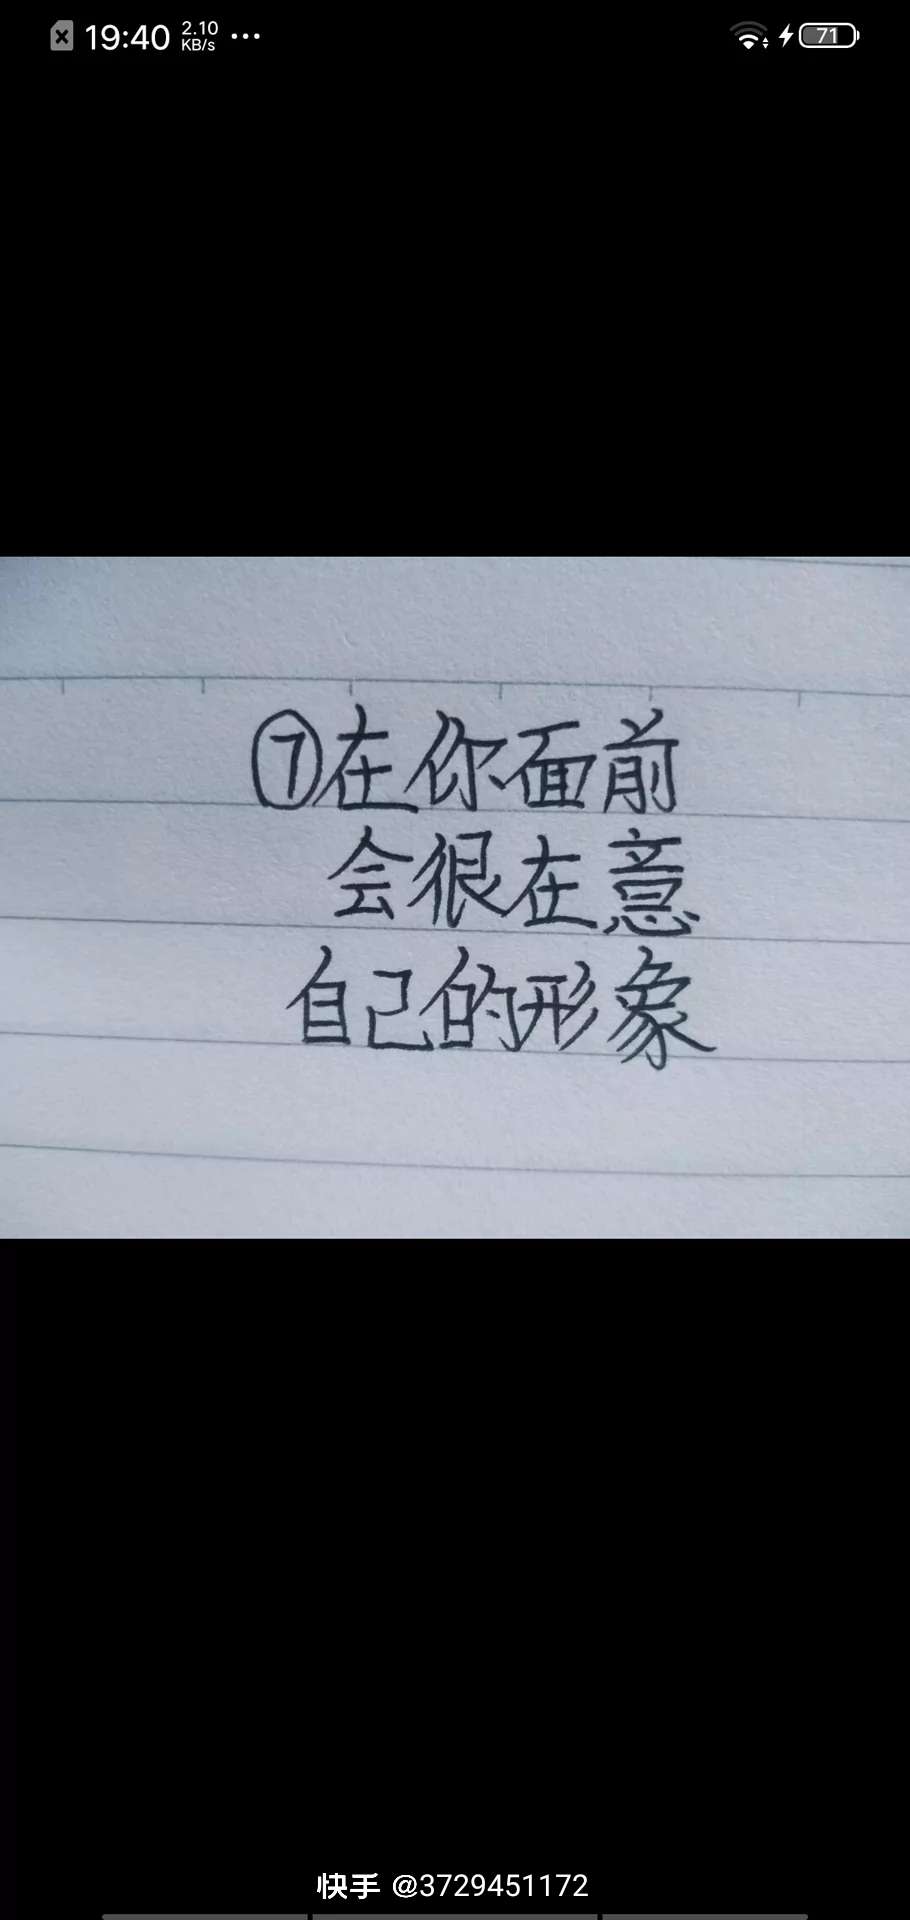 19:40 2.10 KB/s ··· 71
⑦在你面前
会很在意
自己的形象
快手 @3729451172